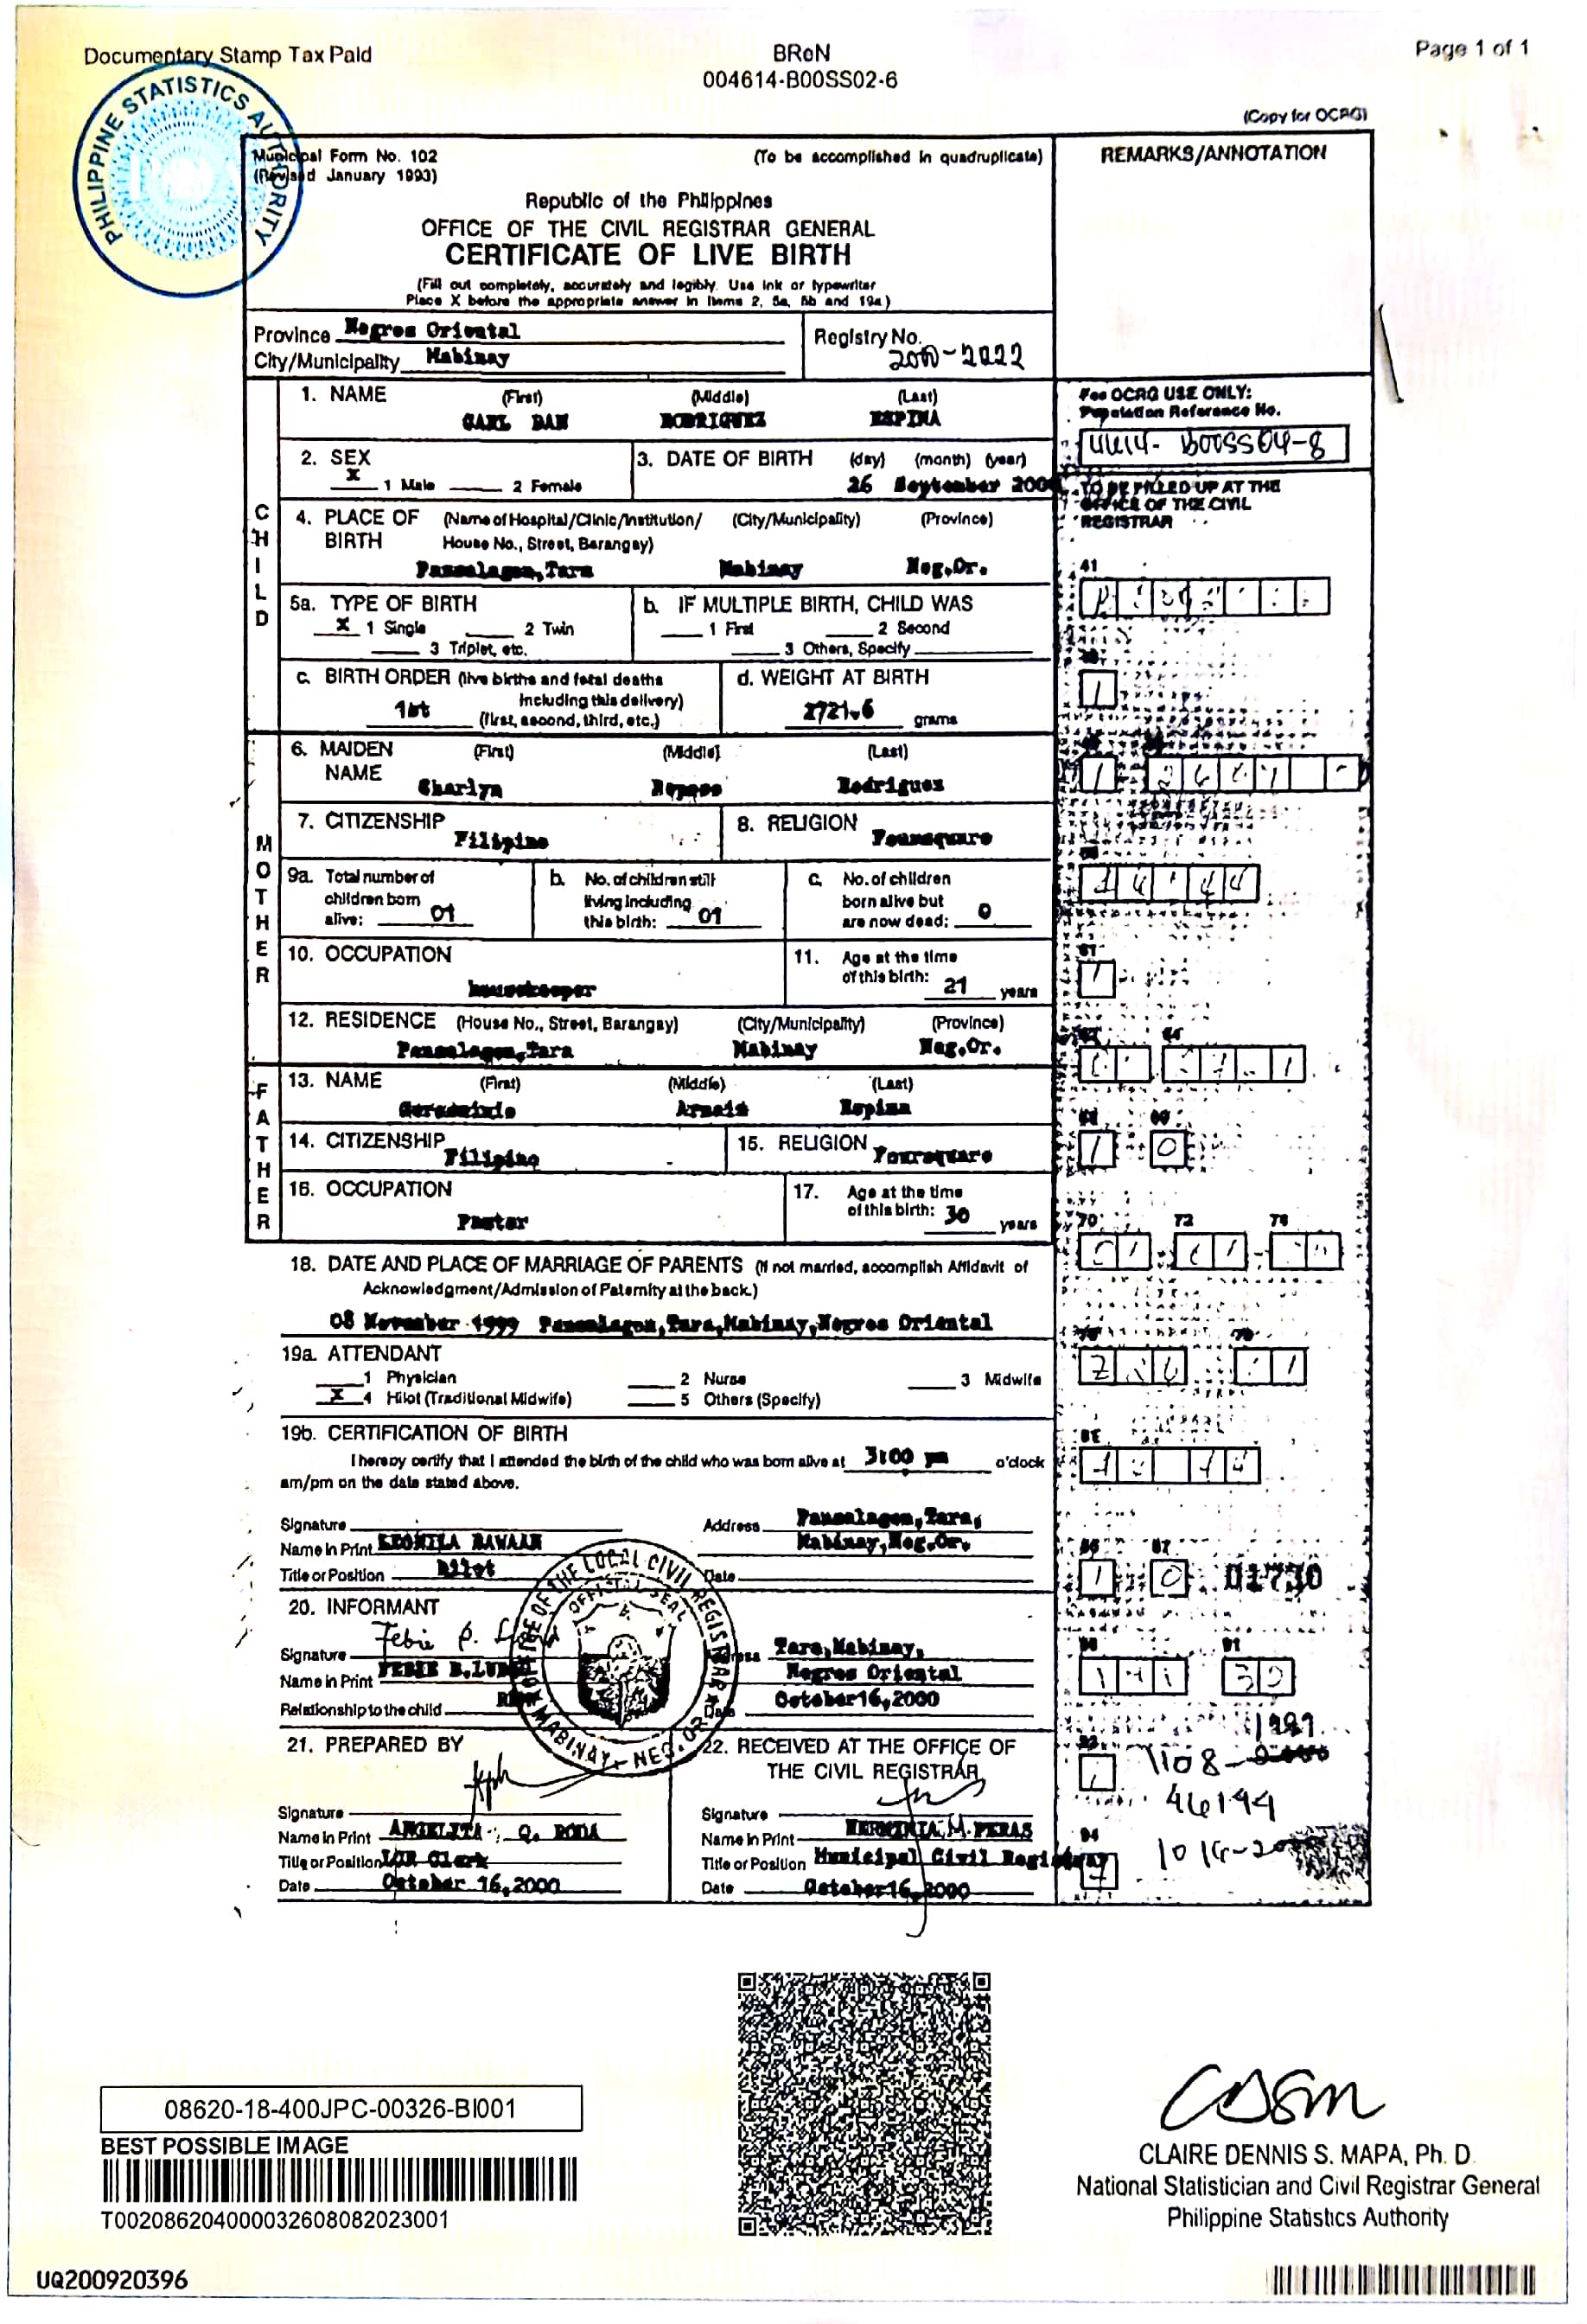 Documentary Stamp Tax Paid
BReN
004614-B00SS02-6
Page 1 of 1
PHILIPPINE STATISTICS AUTHORITY
(Copy for OCRG)
Municipal Form No. 102
(Revised January 1993)
(To be accomplished in quadruplicate)
REMARKS/ANNOTATION
Republic of the Philippines
OFFICE OF THE CIVIL REGISTRAR GENERAL
CERTIFICATE OF LIVE BIRTH
(Fill out completely, accurately and legibly. Use ink or typewriter
Place X before the appropriate answer in items 2, 5a, 5b and 19a)
Province Negros Oriental
City/Municipality Mabinay
Registry No.
2000-2022
CHILD
1. NAME (First) (Middle) (Last)
CARL DAN RODRIGUEZ ESPINA
For OCRG USE ONLY:
Population Reference No.
B00SS04-8
2. SEX
X 1 Male 2 Female
3. DATE OF BIRTH (day) (month) (year)
26 September 2000
TO BE FILLED UP AT THE
OFFICE OF THE CIVIL
REGISTRAR
4. PLACE OF BIRTH (Name of Hospital/Clinic/Institution/ House No., Street, Barangay) (City/Municipality) (Province)
Tara Mabinay Neg.Or.
41
5a. TYPE OF BIRTH
X 1 Single 2 Twin
3 Triplet, etc.
b. IF MULTIPLE BIRTH, CHILD WAS
1 First 2 Second
3 Others, Specify
c. BIRTH ORDER (live births and fetal deaths including this delivery)
1st (first, second, third, etc.)
d. WEIGHT AT BIRTH
2721.6 grams
MOTHER
6. MAIDEN NAME (First) (Middle) (Last)
Charlyn Rodriguez
7. CITIZENSHIP Filipino
8. RELIGION Foursquare
9a. Total number of children born alive: 01
b. No. of children still living including this birth: 01
c. No. of children born alive but are now dead: 0
10. OCCUPATION
housekeeper
11. Age at the time of this birth: 21 years
12. RESIDENCE (House No., Street, Barangay) (City/Municipality) (Province)
Tara Mabinay Neg.Or.
FATHER
13. NAME (First) (Middle) (Last)
Espina
14. CITIZENSHIP Filipino
15. RELIGION Foursquare
16. OCCUPATION
Pastor
17. Age at the time of this birth: 30 years
70 72
18. DATE AND PLACE OF MARRIAGE OF PARENTS (If not married, accomplish Affidavit of
Acknowledgment/Admission of Paternity at the back.)
08 November 1999 Tara, Mabinay, Negros Oriental
19a. ATTENDANT
1 Physician 2 Nurse 3 Midwife
X 4 Hilot (Traditional Midwife) 5 Others (Specify)
19b. CERTIFICATION OF BIRTH
I hereby certify that I attended the birth of the child who was born alive at 3:00 pm o'clock
am/pm on the date stated above.
Signature
Name in Print
Title or Position Hilot
Address Tara,
Mabinay, Neg.Or.
Date
01730
20. INFORMANT
Signature Febie
Name in Print FEBIE B.
Relationship to the child
Tara, Mabinay,
Negros Oriental
Date October 16, 2000
OFFICE OF THE LOCAL CIVIL REGISTRAR
OFFICIAL SEAL
MABINAY, NEG. OR.
21. PREPARED BY
Signature
Name in Print ANGELITA Q. RODA
Title or Position LCR Clerk
Date October 16, 2000
22. RECEIVED AT THE OFFICE OF
THE CIVIL REGISTRAR
Signature
Name in Print HERMINIA M. PERAS
Title or Position Municipal Civil Registrar
Date October 16, 2000
08620-18-400JPC-00326-BI001
BEST POSSIBLE IMAGE
T002086204000032608082023001
CLAIRE DENNIS S. MAPA, Ph. D.
National Statistician and Civil Registrar General
Philippine Statistics Authority
UQ200920396